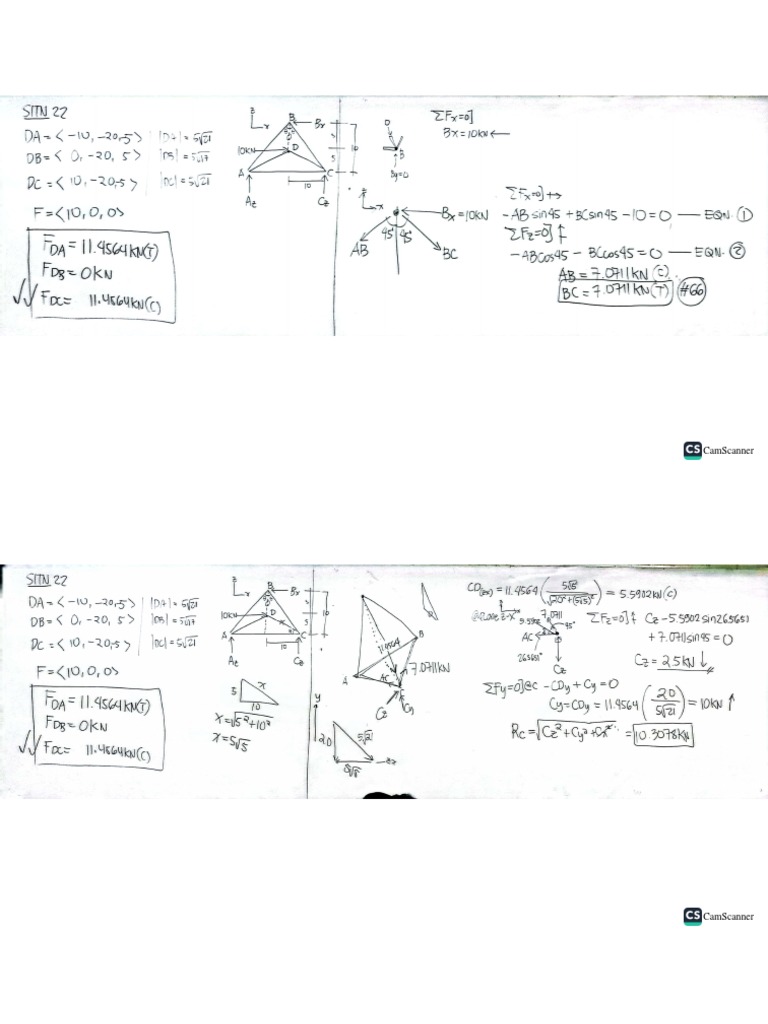 SITN 22
DA = < -10, -20, -5 > |DA| = 5√21
DB = < 0, -20, 5 > |DB| = 5√17
DC = < 10, -20, -5 > |DC| = 5√21
F = < 10, 0, 0 >
F_DA = 11.4564 kN (T)
F_DB = 0 kN
F_DC = 11.4564 kN (C)
z
x
B
Bx
10kN
D
A
C
5
5
10
10
Az
Cz
D
B
By=0
ΣFx=0]
Bx = 10kN ←
z
x
Bx = 10kN
45° 45°
AB
BC
ΣFx=0] →+
-AB sin45 + BC sin45 - 10 = 0 — EQN. ①
ΣFz=0] ↑
-AB cos45 - BC cos45 = 0 — EQN. ②
AB = 7.0711 kN (C)
BC = 7.0711 kN (T) #66
CS CamScanner
SITN 22
DA = < -10, -20, -5 > |DA| = 5√21
DB = < 0, -20, 5 > |DB| = 5√17
DC = < 10, -20, -5 > |DC| = 5√21
F = < 10, 0, 0 >
F_DA = 11.4564 kN (T)
F_DB = 0 kN
F_DC = 11.4564 kN (C)
z
x
B
Bx
10kN
D
A
C
5
5
10
10
Az
Cz
5
x
10
x = √5²+10²
x = 5√5
11.4564
B
A
AC
C
7.0711kN
Cz
Cy
y
20
5√21
5√5
CD(zx) = 11.4564 (5√5 / √20²+(5√5)²) = 5.5902 kN (C)
7.0711
45°
AC
26.5651°
Cz
ΣFz=0] ↑ Cz - 5.5902 sin26.5651
+ 7.0711 sin45 = 0
Cz = 2.5 kN ↓
ΣFy=0]@C -CDy + Cy = 0
Cy = CDy = 11.4564 (20 / 5√21) = 10kN ↑
Rc = √Cz² + Cy² + Cx² = 10.3078 kN
CS CamScanner